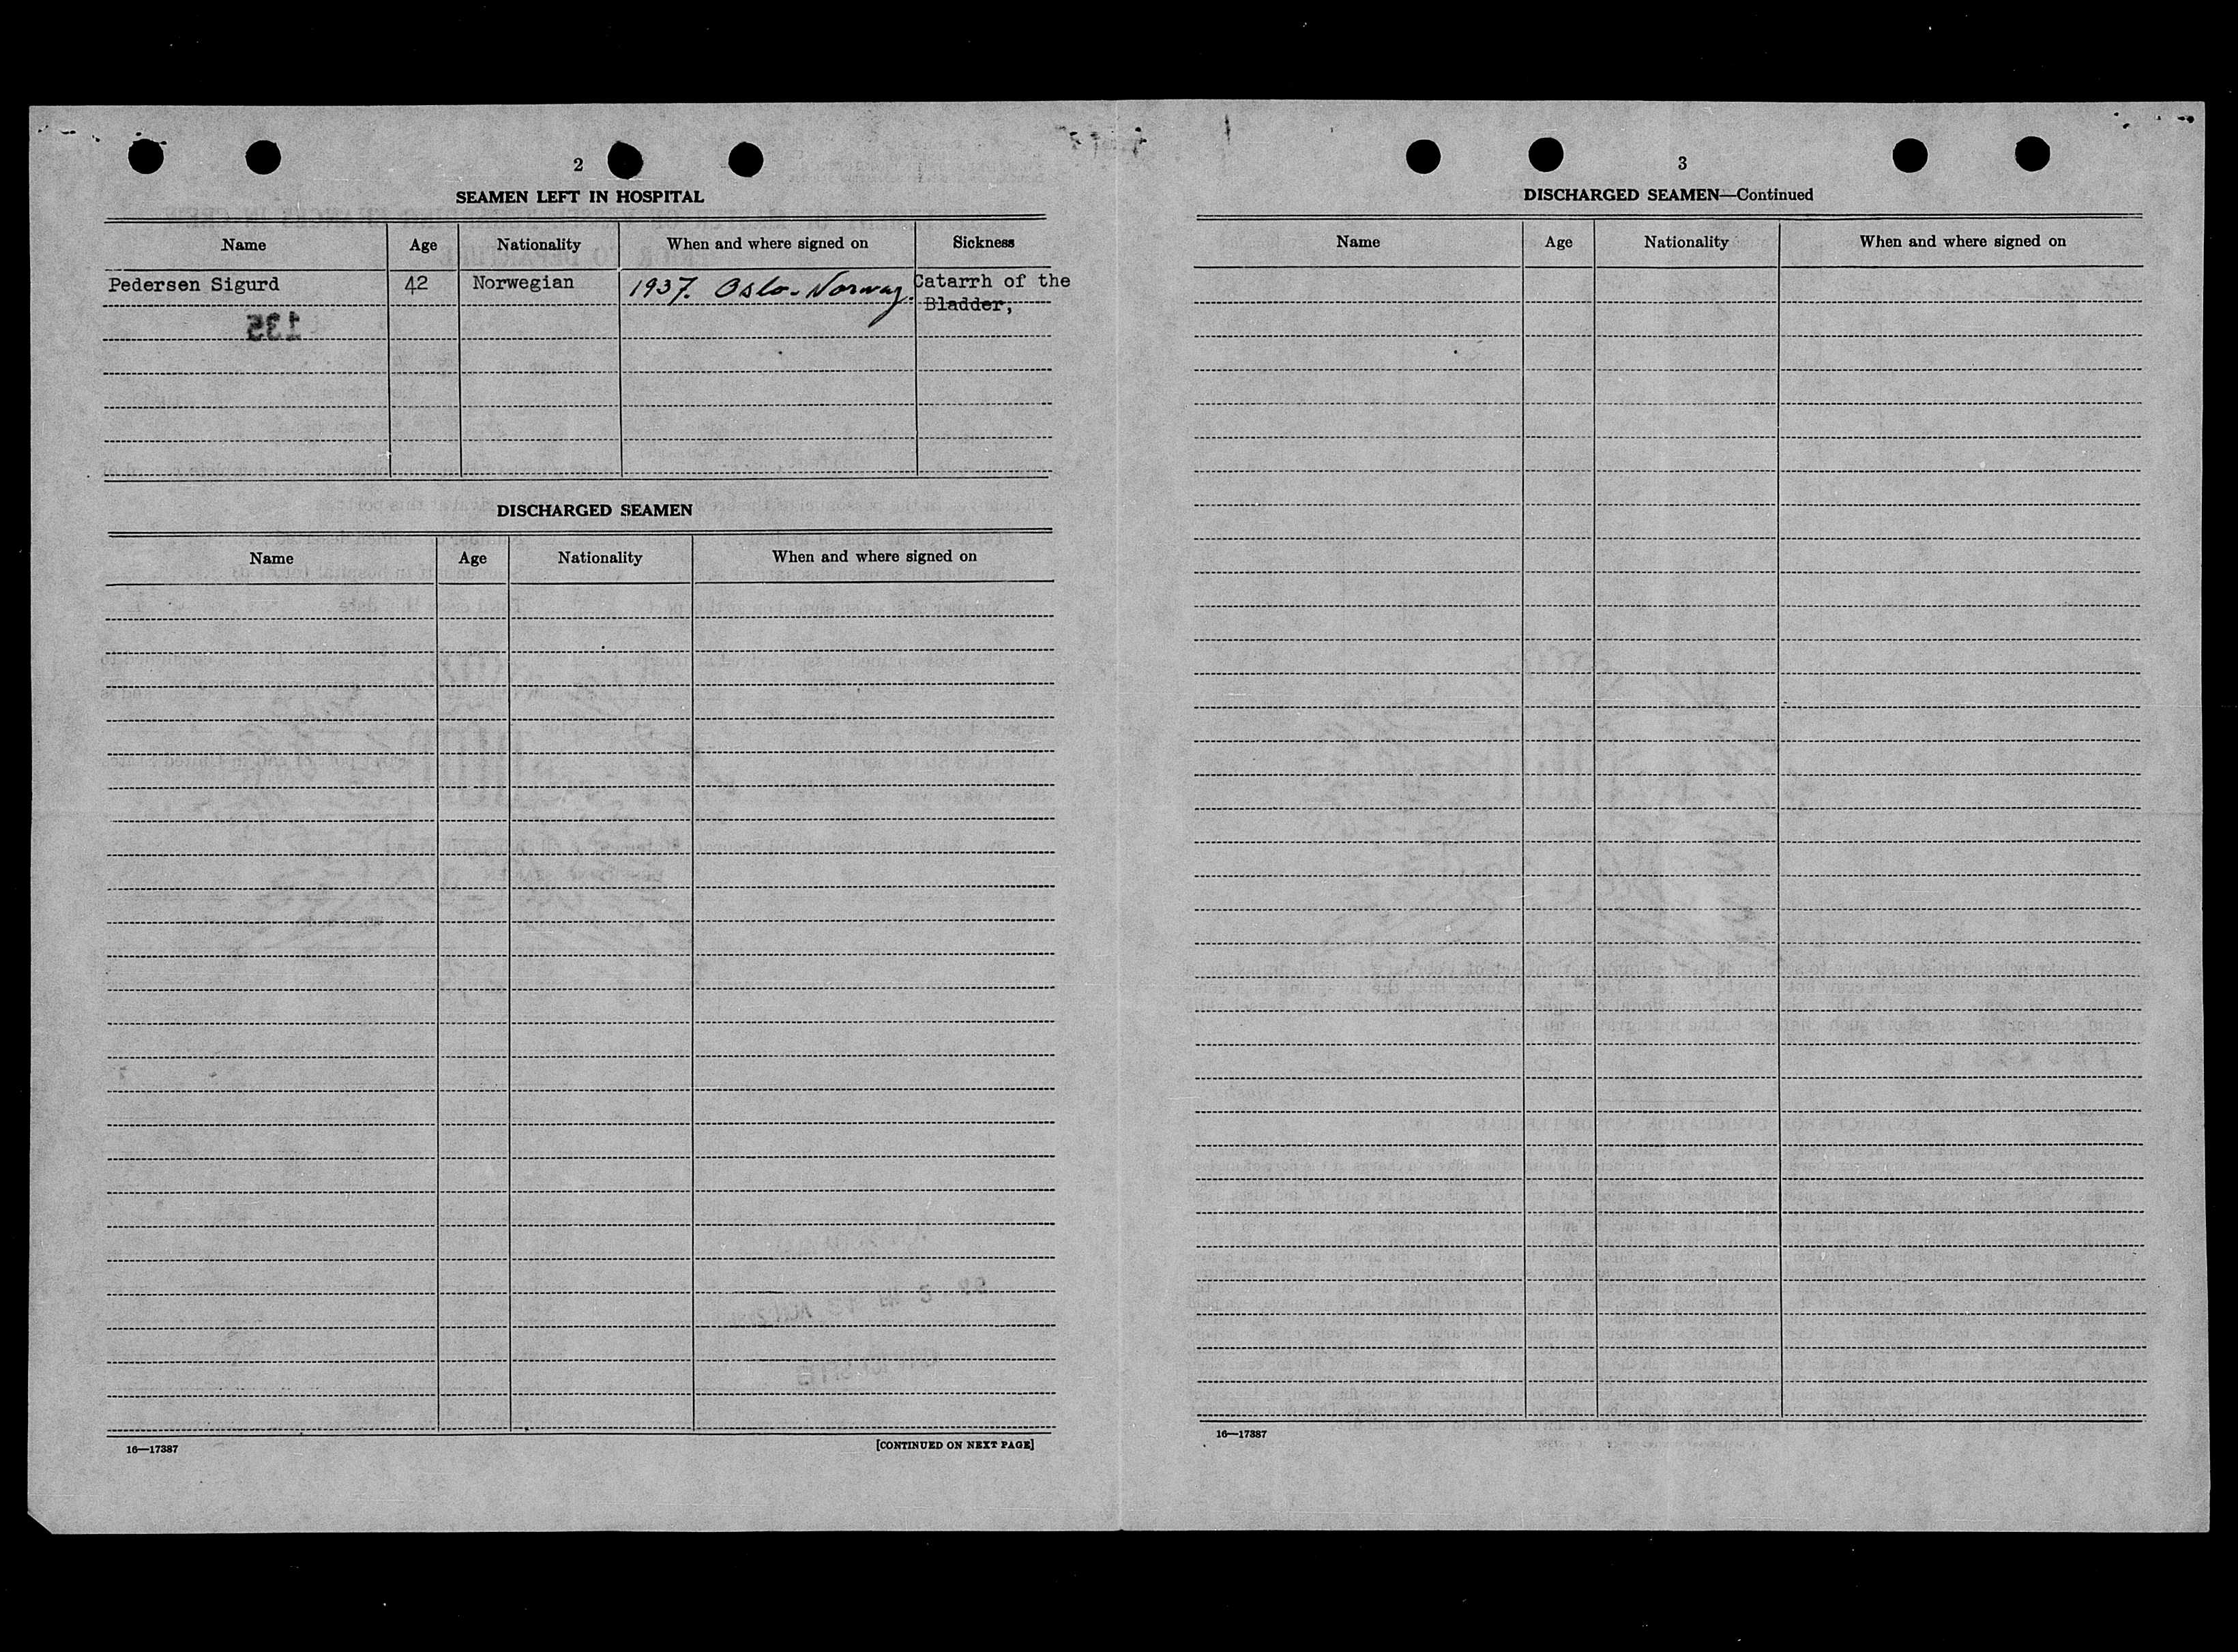 2
SEAMEN LEFT IN HOSPITAL
Name Age Nationality When and where signed on Sickness
Pedersen Sigurd 42 Norwegian 1937. Oslo-Norway. Catarrh of the
Bladder,
135
DISCHARGED SEAMEN
Name Age Nationality When and where signed on
16—17387 [CONTINUED ON NEXT PAGE]
3
DISCHARGED SEAMEN—Continued
Name Age Nationality When and where signed on
16—17387